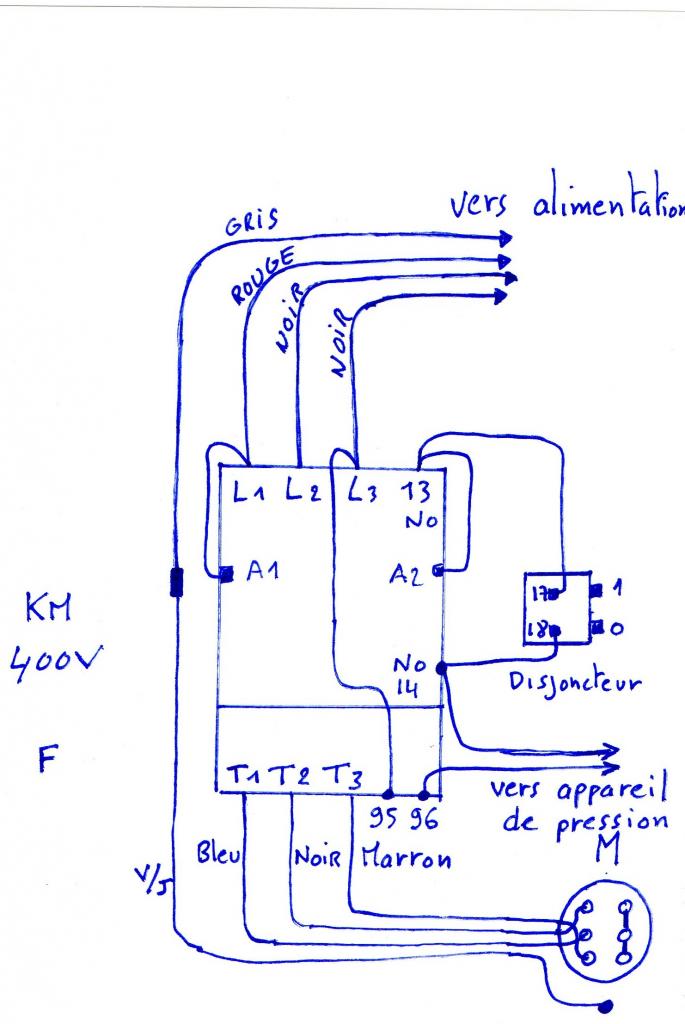 vers alimentation
GRIS
ROUGE
NOIR
NOIR
L1 L2 L3 13
NO
A1 A2
17 1
18 0
KM
400V
NO
14
Disjoncteur
F
T1 T2 T3
95 96
vers appareil
de pression
Bleu Noir Marron
M
V/J